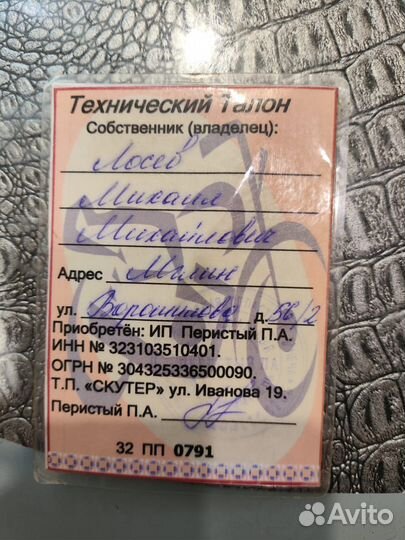 Технический Талон
Собственник (владелец):
Лосев
Михаил
Михайлович
Адрес Милин
ул. Ворошилова д. 56/2
Приобретён: ИП Перистый П.А.
ИНН № 323103510401.
ОГРН № 304325336500090.
Т.П. «СКУТЕР» ул. Иванова 19.
Перистый П.А.
32 ПП 0791
Avito